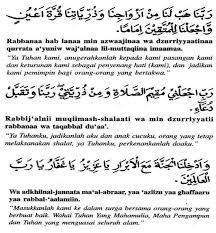 رَبَّنَا هَبْ لَنَا مِنْ اَزْوَاجِنَا وَذُرِّيَّاتِنَا قُرَّةَ اَعْيُنٍ
وَاجْعَلْنَا لِلْمُتَّقِيْنَ اِمَامًا.
Rabbanaa hab lanaa min azwaajinaa wa dzurriyyaatinaa
qurrata a'yuniw waj'alnaa lil-muttaqiina imaamaa.
"Ya Tuhan kami, anugerahkanlah kepada kami pasangan kami
dan keturunan kami sebagai penyenang hati (kami), dan jadikan
kami pemimpin bagi orang-orang yang bertakwa),
رَبِّ اجْعَلْنِيْ مُقِيْمَ الصَّلَاةِ وَمِنْ ذُرِّيَّتِيْ رَبَّنَا وَتَقَبَّلْ
دُعَاءِ.
Rabbij'alnii muqiimash-shalaati wa min dzurriyyatii
rabbanaa wa taqabbal du'aa'.
"Ya Tuhanku, jadikanlah aku dan anak cucuku, orang-orang yang tetap
melaksanakan shalat, ya Tuhanku, perkenankanlah doaku."
وَاَدْخِلْنَا الْجَنَّةَ مَعَ الْاَبْرَارِ يَا عَزِيْزُ يَا غَفَّارُ يَا رَبَّ
الْعَالَمِيْنَ.
Wa adkhilnal-jannata ma'al-abraar, yaa 'aziizu yaa ghaffaaru
yaa rabbal-'aalamiin.
"Masukkanlah kami ke dalam surga bersama orang-orang yang
berbuat baik. Wahai Tuhan Yang Mahamulia, Maha Pengampun
dan Tuhan yang menguasai seluruh alam."